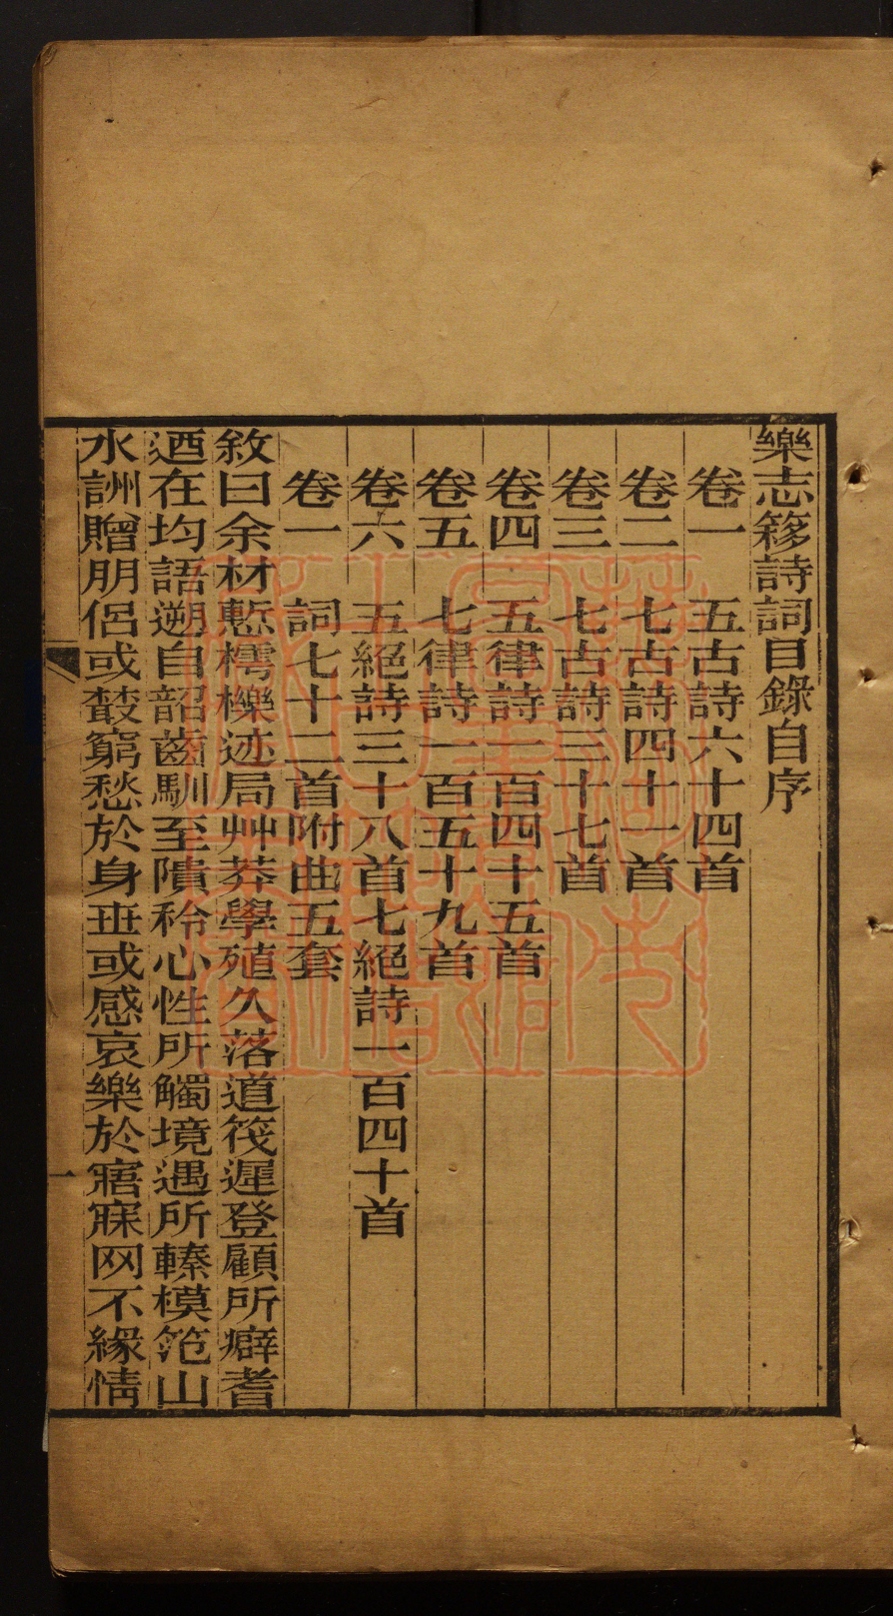 樂志簃詩詞目錄自序
卷一 五古詩六十四首
卷二 七古詩四十一首
卷三 七古詩三十七首
卷四 五律詩一百四十五首
卷五 七律詩一百五十九首
卷六 五絕詩三十八首七絕詩一百四十首
卷一 詞七十二首附曲五套
敘曰余材慙樗櫟迹局艸莽學殖久落道筏遲登顧所癖耆
迺在均語遡自韶齒馴至隤秢心性所觸境遇所轃模笵山
水詶贈朋侣或蝥窮愁於身丗或感哀樂於寤寐网不緣情
一